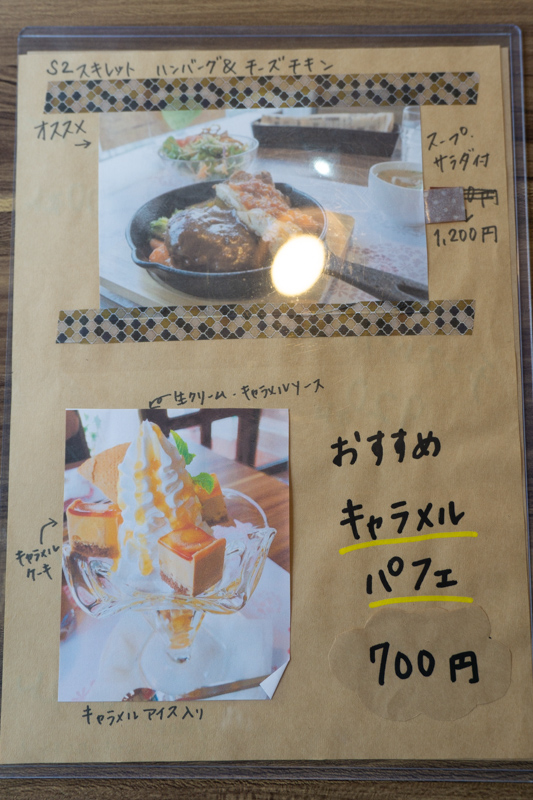 S2スキレット ハンバーグ& チーズチキン
オススメ
→
スープ・
サラダ付
0円
↓
1,200円
生クリーム・キャラメルソース
おすすめ
キャラメル
パフェ
700円
キャラメル
ケーキ
キャラメルアイス入り